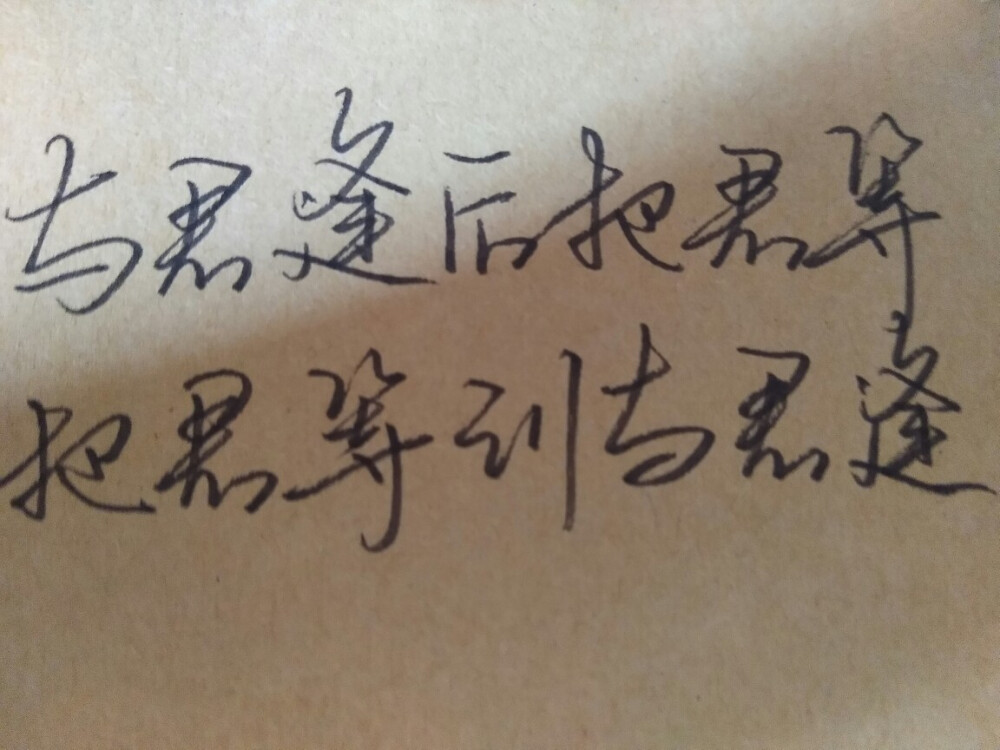 与君逢后把君等
把君等到与君逢